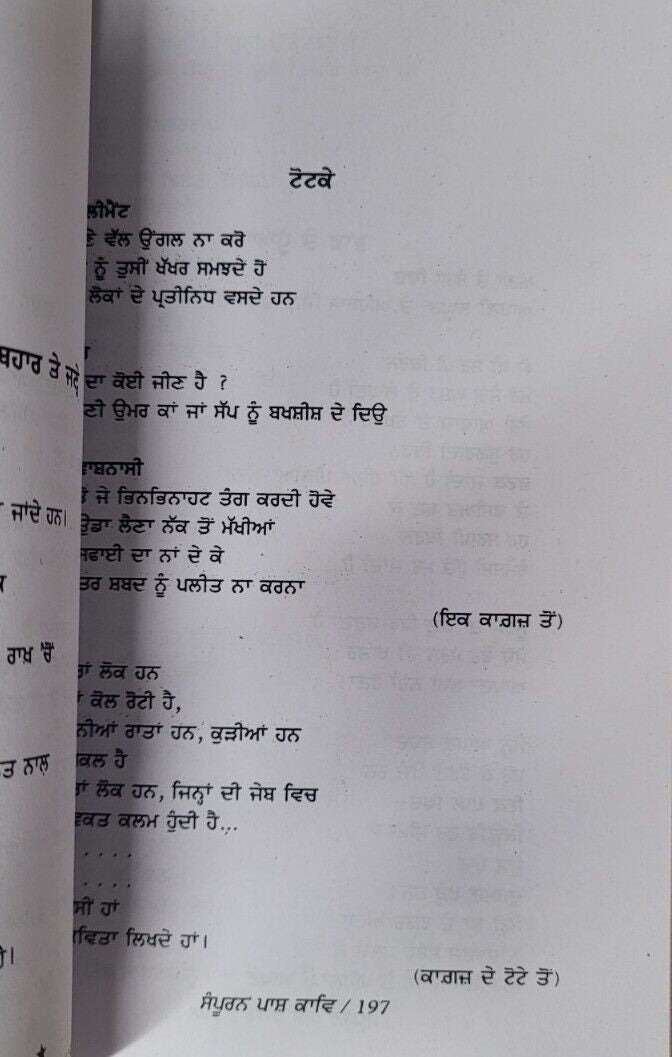 ਟੋਟਕੇ
ਲੀਮੈਂਟ
ਵੱਲ ਉਂਗਲ ਨਾ ਕਰੋ
ਨੂੰ ਤੁਸੀਂ ਖੱਖਰ ਸਮਝਦੇ ਹੋ
ਲੋਕਾਂ ਦੇ ਪ੍ਰਤੀਨਿਧ ਵਸਦੇ ਹਨ
ਬਹਾਰ ਤੇ ਜਦੋਂ
ਦਾ ਕੋਈ ਜੀਣ ਹੈ ?
ਣੀ ਉਮਰ ਕਾਂ ਜਾਂ ਸੱਪ ਨੂੰ ਬਖਸ਼ੀਸ਼ ਦੇ ਦਿਉ
ਜੇ ਭਿਨਭਿਨਾਹਟ ਤੰਗ ਕਰਦੀ ਹੋਵੇ
ਜਾਂਦੇ ਹਨ।
ਉਡਾ ਲੈਣਾ ਨੱਕ ਤੋਂ ਮੱਖੀਆਂ
ਸਫਾਈ ਦਾ ਨਾਂ ਦੇ ਕੇ
ਤਰ ਸ਼ਬਦ ਨੂੰ ਪਲੀਤ ਨਾ ਕਰਨਾ
(ਇਕ ਕਾਗ਼ਜ਼ ਤੋਂ)
ਰਾਖ਼ ਚੋਂ
ਲੋਕ ਹਨ
ਕੋਲ ਰੋਟੀ ਹੈ,
ਨੀਆਂ ਰਾਤਾਂ ਹਨ, ਕੁੜੀਆਂ ਹਨ
ਕਲ ਹੈ
ਤ ਨਾਲ
ਲੋਕ ਹਨ, ਜਿਨ੍ਹਾਂ ਦੀ ਜੇਬ ਵਿਚ
ਕਤ ਕਲਮ ਹੁੰਦੀ ਹੈ...
. . . .
. . . .
ਸੀਂ ਹਾਂ
ਵਿਤਾ ਲਿਖਦੇ ਹਾਂ।
(ਕਾਗਜ਼ ਦੇ ਟੋਟੇ ਤੋਂ)
ਸੰਪੂਰਨ ਪਾਸ਼ ਕਾਵਿ / 197